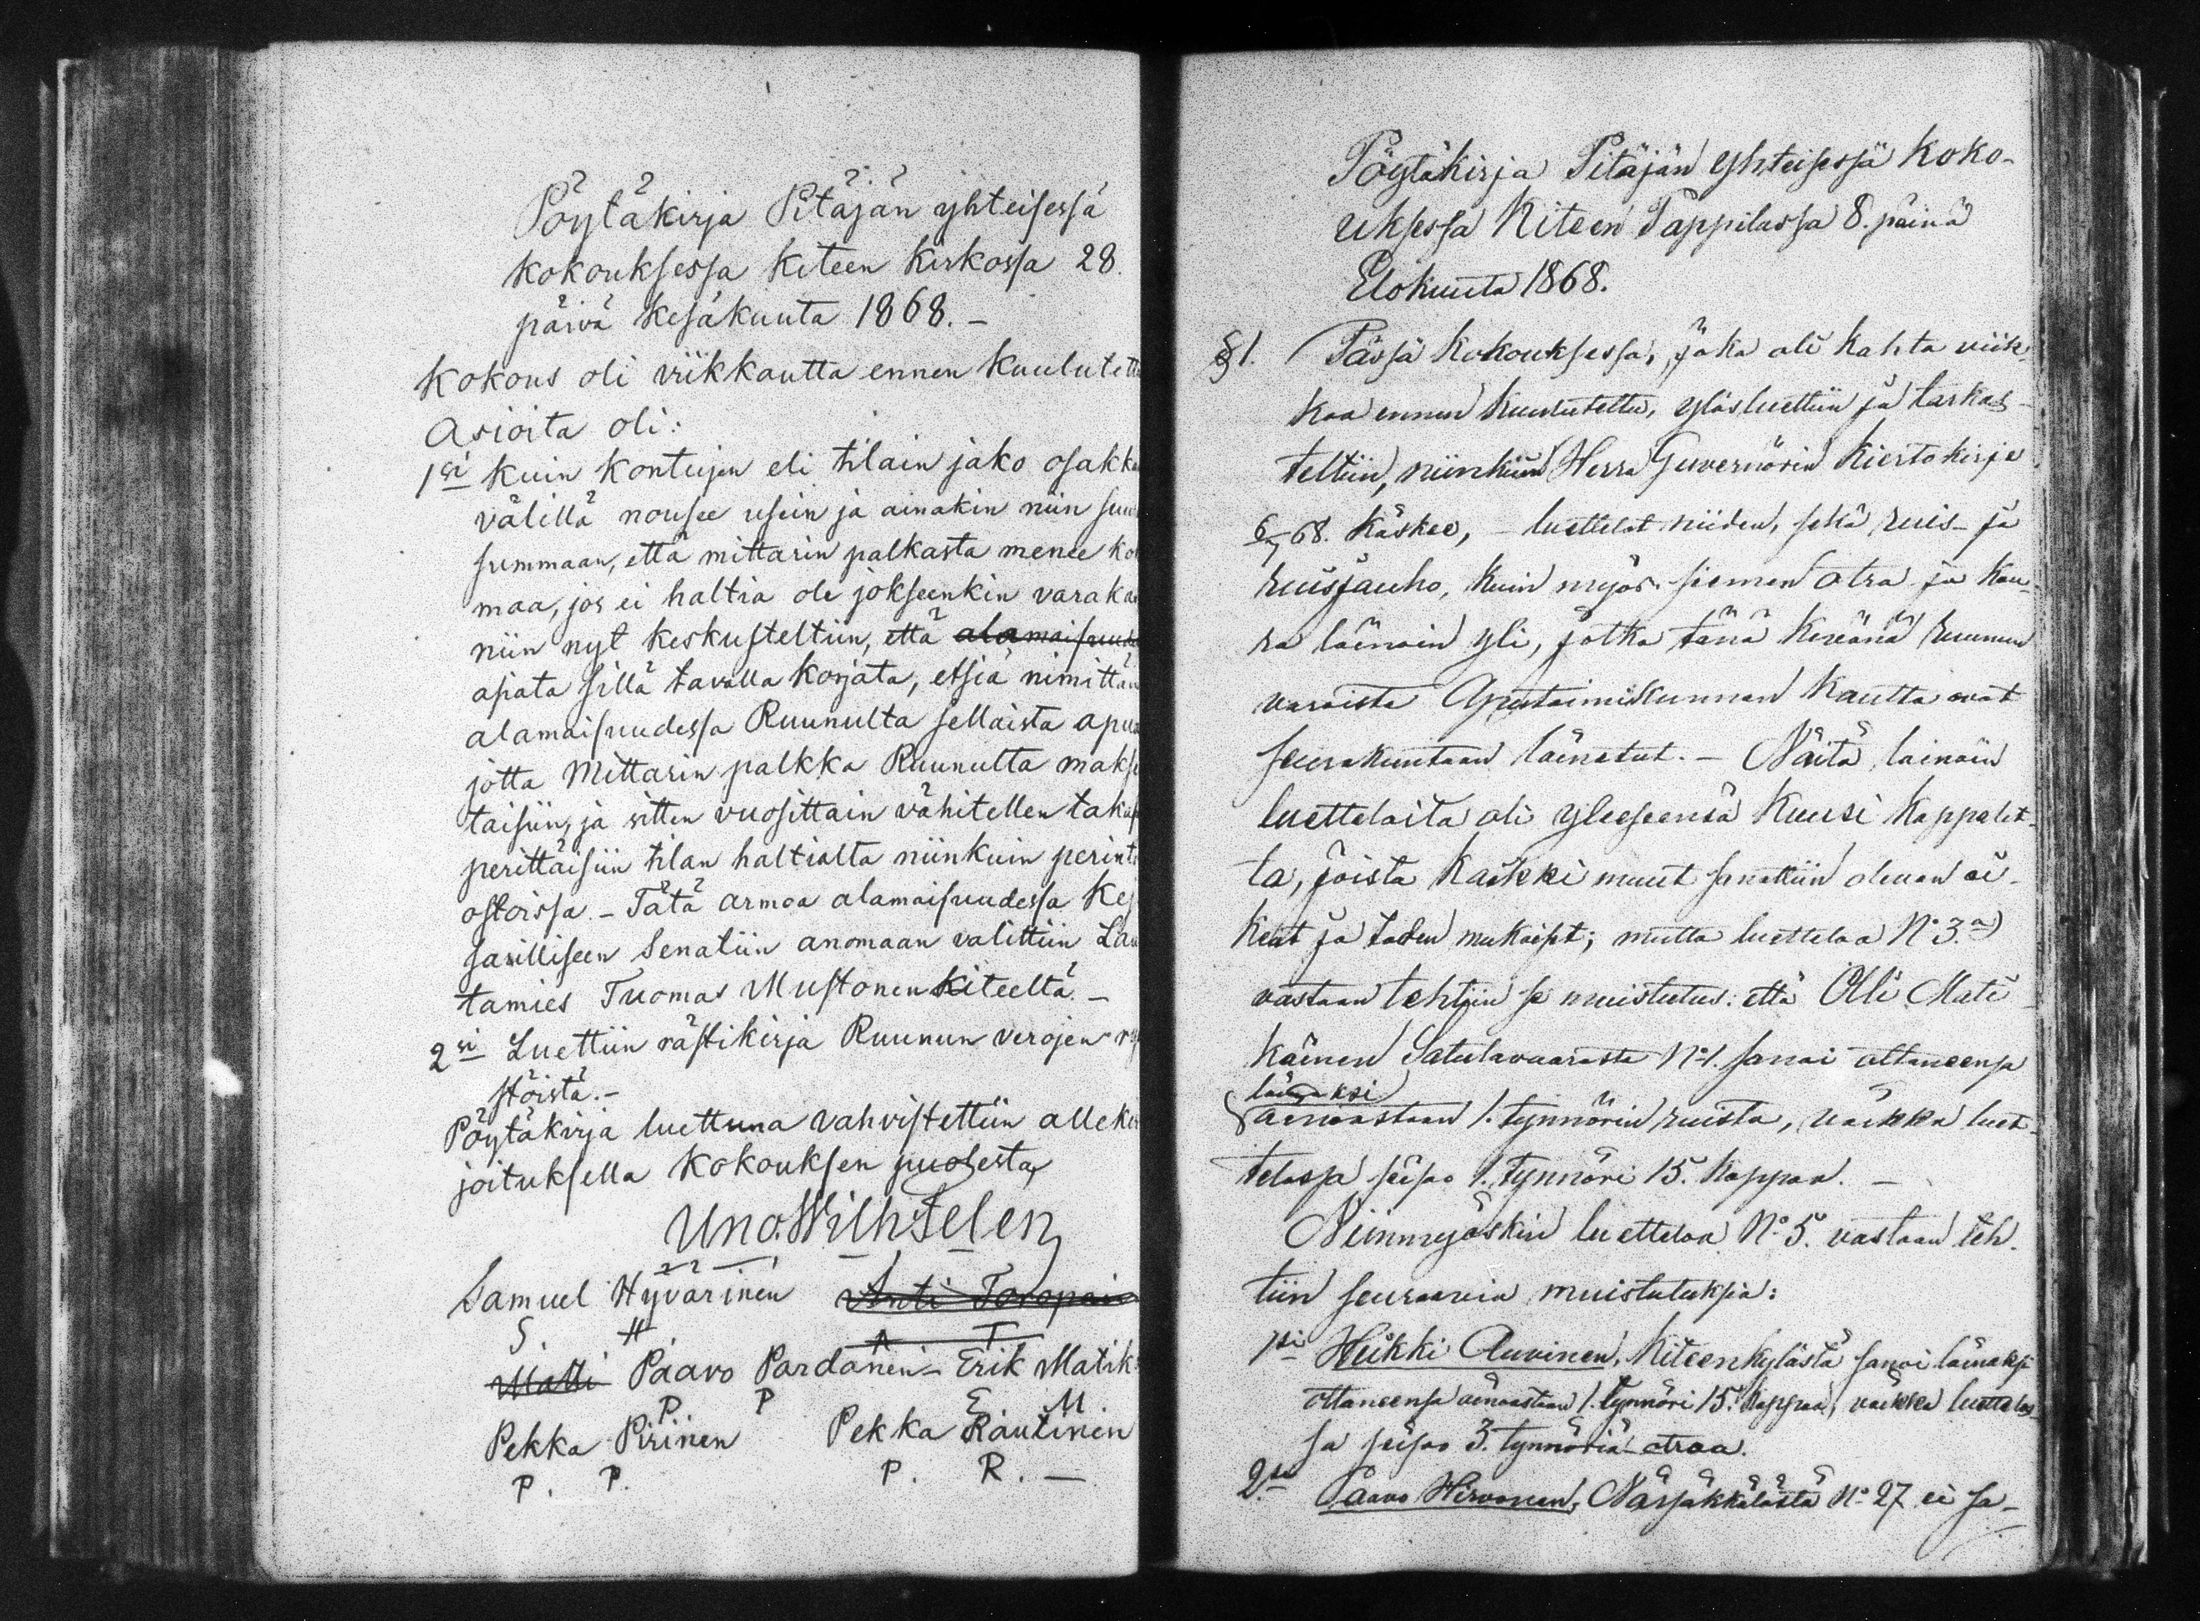 Pöytäkirja Pitäjän yhteisessä
kokouksessa Kiteen Kirkossa 28.
päivä Kesäkuuta 1868. –
Kokous oli viikkautta ennen kuulutettu
Asioita oli:
1si Kuin Kontujen eli tilain jako osakka
välillä nousee usein ja ainakin niin suu
summaan, että mittarin palkasta menee ko
maa, jos ei haltia ole jokseenkin varaka
niin nyt keskusteltiin, että alamaisuude
asiata sillä tavalla korjata, etsiä nimittäi
alamaisuudessa Ruunulta sellaista apua
jotta Mittarin palkka Ruunulta makse
taisiin, ja sitten vuosittain vähitellen takas
perittäisiin tilan haltialta niinkuin perintö
ostoissa. – Tätä armoa alamaisuudessa Kej
sarilliseen Senatiin anomaan valittiin Lau
tamies Tuomas Mustonen Kiteeltä. –
2si Luettiin rästikirja Ruunun verojen rä
stöistä. –
Pöytäkirja luettuna vahvistettiin alleki
joituksella Kokouksen puolesta,
Uno. Wilh Telen
Samuel Hyvärinen Anti Toropain
S. H A T
Matti Paavo Pardanen – Erik Matik
P P E M
Pekka Piriinen Pekka Rautinen
P. P. P. R. –
Pöytäkirja Pitäjän yhteisessä koko-
uksessa Kiteen Pappilassa 8. päinä
Elokuuta 1868.
§ 1. Tässä Kokouksessa, joka oli kahta viik-
koa ennen kuulutettu, ylösluettiin ja tarkas-
teltiin, niinkuin Herra Guvernörin Kiertokirje
6/7 68. Käskee, – luettelot niiden, sekä ruis- ja
ruisjauho, kuin myös siemen otra ja kau-
ra lainain yli, jotka tänä keväänä ruunun
varoista Aputoimikunnan kautta ovat
seurakuntaan lainatut. – Näitä lainain
luetteloita oli yleeseensä Kuusi kappalet-
ta, joista kaikki muut sanottiin olevan oi-
keat ja toden mukaiset; mutta luetteloa No 3. a)
vastaan tehtiin se muistutus: että Olli Mati-
kainen Satulavaarasta No 1. sanoi ottaneensa
lainaksi
ainoastaan 1. tynnörin ruista, vaikka luet-
telossa seisoo 1. tynnöri 15. kappaa. –
Niinmyöskin luetteloa No 5. vastaan teh-
tiin seuraavia muistutuksia:
1si Heikki Auvinen, Kiteenkylästä sanoi lainaksi
ottaneensa ainoastaan 1. tynnöri 15. kappaa, vaikka luettelos-
sa seisoo 3. tynnöriä otraa.
2si Paavo Hirvonen, Närsäkkälästä No 27 ei sa-